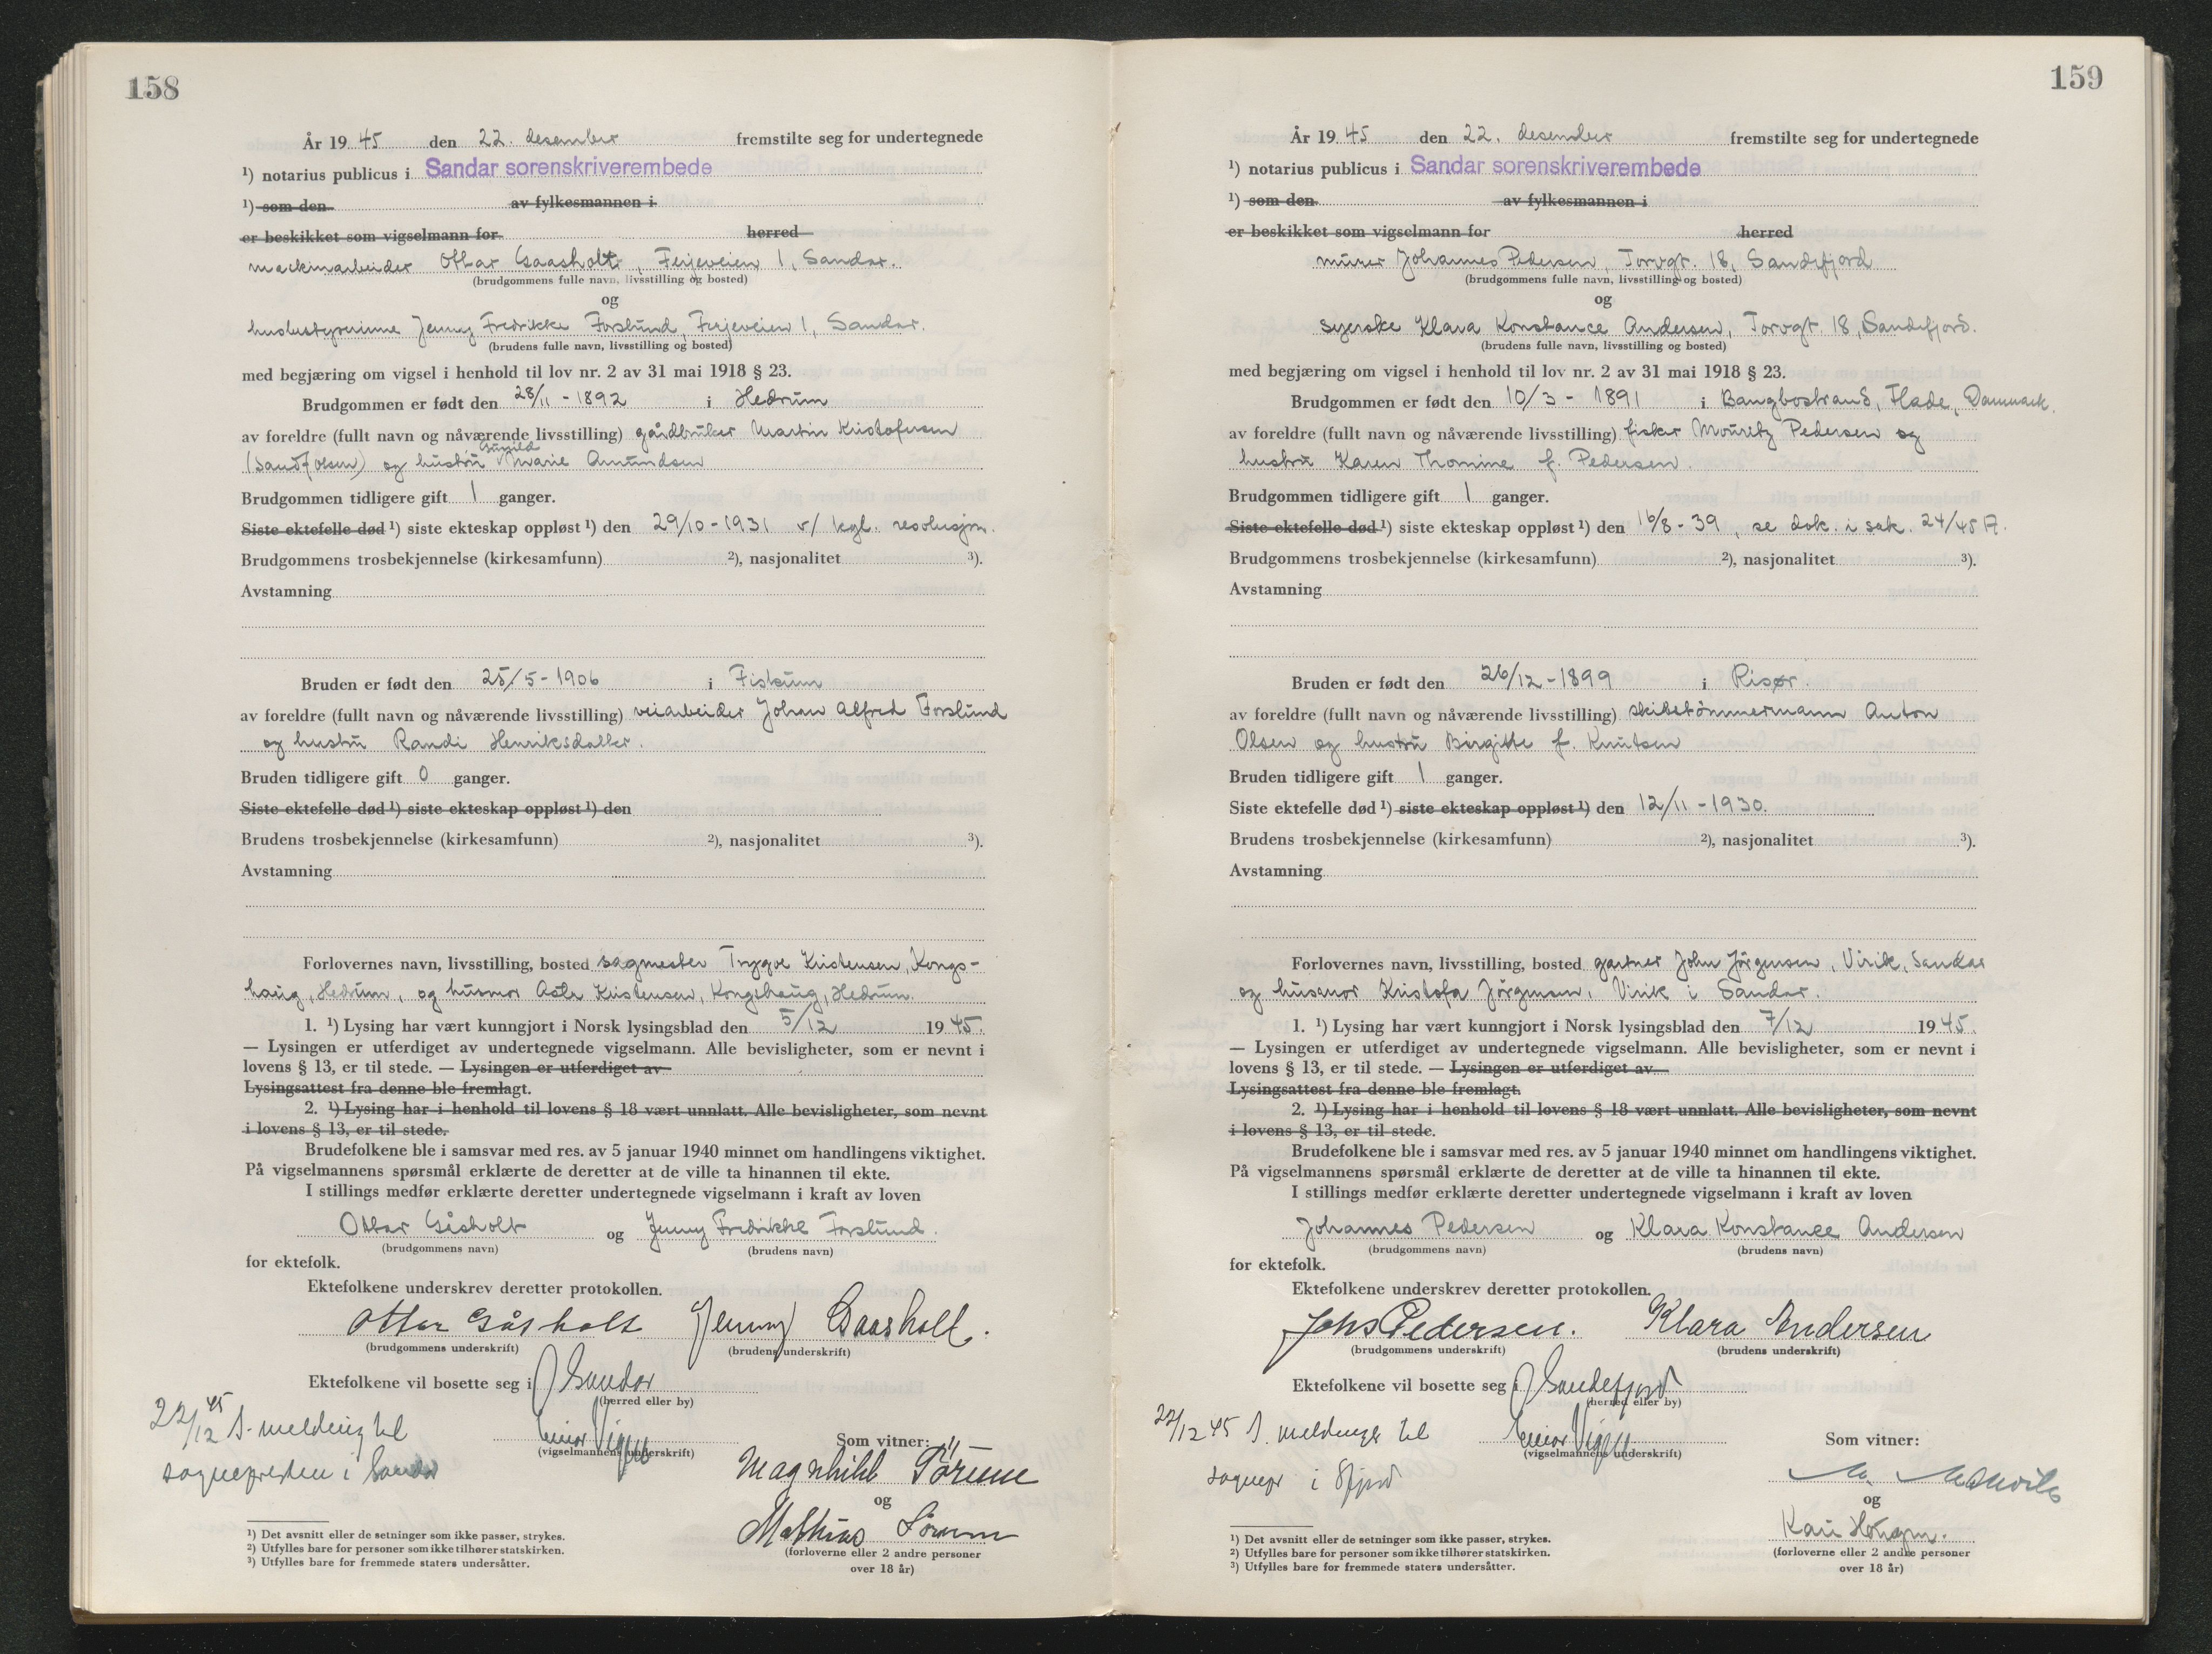 158
År 1945 den 22. desember fremstilte seg for undertegnede
¹) notarius publicus i Sandar sorenskriverembede
¹) som den av fylkesmannen i
er beskikket som vigselmann for herred
maskinarbeider Ottar Gaasholt, Ferjeveien 1, Sandar.
(brudgommens fulle navn, livsstilling og bosted)
og
husbestyrerinne Jenny Fredrikke Forslund, Ferjeveien 1, Sandar.
(brudens fulle navn, livsstilling og bosted)
med begjæring om vigsel i henhold til lov nr. 2 av 31 mai 1918 § 23.
Brudgommen er født den 28/11 - 1892 i Hedrum
av foreldre (fullt navn og nåværende livsstilling) gårdbruker Martin Kristofersen
Gunild
og hustru Marie Amundsen
Brudgommen tidligere gift 1 ganger.
Siste ektefelle død ¹) siste ekteskap oppløst ¹) den 29/10-1931 v/ kgl. resolusjon.
Brudgommens trosbekjennelse (kirkesamfunn) ²), nasjonalitet ³).
Avstamning
Bruden er født den 25/5-1906 i Fiskum
av foreldre (fullt navn og nåværende livsstilling) veiarbeider Johan Alfred Forslund
og hustru Randi Henriksdatter.
Bruden tidligere gift 0 ganger.
Siste ektefelle død ¹) siste ekteskap oppløst ¹) den
Brudens trosbekjennelse (kirkesamfunn) ²), nasjonalitet ³).
Avstamning
Forlovernes navn, livsstilling, bosted sagmester Trygve Kristensen, Kongs-
haug, Hedrum, og husmor Asta Kristensen, Kongshaug, Hedrum.
1. ¹) Lysing har vært kunngjort i Norsk lysingsblad den 5/12 1945.
— Lysingen er utferdiget av undertegnede vigselmann. Alle bevisligheter, som er nevnt i
lovens § 13, er til stede. — Lysingen er utferdiget av
Lysingsattest fra denne ble fremlagt.
2. ¹) Lysing har i henhold til lovens § 18 vært unnlatt. Alle bevisligheter, som nevnt
i lovens § 13, er til stede.
Brudefolkene ble i samsvar med res. av 5 januar 1940 minnet om handlingens viktighet.
På vigselmannens spørsmål erklærte de deretter at de ville ta hinannen til ekte.
I stillings medfør erklærte deretter undertegnede vigselmann i kraft av loven
Ottar Gåsholt og Jenny Fredrikke Forslund.
(brudgommens navn) (brudens navn)
for ektefolk.
Ektefolkene underskrev deretter protokollen.
Ottar Gåsholt Jenny Gaasholt.
(brudgommens underskrift) (brudens underskrift)
Ektefolkene vil bosette seg i Sandar
(herred eller by)
22/12 45 S. melding til
sognepresten i Sandar
(vigselmannens underskrift)
Som vitner:
Magnhild Sørum
og
Mathias Sørum
(forloverne eller 2 andre personer
over 18 år)
¹) Det avsnitt eller de setninger som ikke passer, strykes.
²) Utfylles bare for personer som ikke tilhører statskirken.
³) Utfylles bare for fremmede staters undersåtter.
159
År 1945 den 22. desember fremstilte seg for undertegnede
¹) notarius publicus i Sandar sorenskriverembede
¹) som den av fylkesmannen i
er beskikket som vigselmann for herred
murer Johannes Pedersen, Torvgt. 18, Sandefjord
(brudgommens fulle navn, livsstilling og bosted)
og
syerske Klara Konstance Andersen, Torvgt. 18, Sandefjord.
(brudens fulle navn, livsstilling og bosted)
med begjæring om vigsel i henhold til lov nr. 2 av 31 mai 1918 § 23.
Brudgommen er født den 10/3 - 1891 i Bangbostrand, Flade, Danmark.
av foreldre (fullt navn og nåværende livsstilling) fisker Mouritz Pedersen og
hustru Karen Thomine f. Pedersen.
Brudgommen tidligere gift 1 ganger.
Siste ektefelle død ¹) siste ekteskap oppløst ¹) den 16/8-39, se dok. i sak. 24/45 A.
Brudgommens trosbekjennelse (kirkesamfunn) ²), nasjonalitet ³).
Avstamning
Bruden er født den 26/12-1899 i Risør.
av foreldre (fullt navn og nåværende livsstilling) skibstømmermann Anton
Olsen og hustru Birgitte f. Knutsen
Bruden tidligere gift 1 ganger.
Siste ektefelle død ¹) siste ekteskap oppløst ¹) den 12/11-1930.
Brudens trosbekjennelse (kirkesamfunn) ²), nasjonalitet ³).
Avstamning
Forlovernes navn, livsstilling, bosted gartner John Jørgensen, Virik, Sandar
og husmor Kristofa Jørgensen, Virik i Sandar.
1. ¹) Lysing har vært kunngjort i Norsk lysingsblad den 7/12 1945.
— Lysingen er utferdiget av undertegnede vigselmann. Alle bevisligheter, som er nevnt i
lovens § 13, er til stede. — Lysingen er utferdiget av
Lysingsattest fra denne ble fremlagt.
2. ¹) Lysing har i henhold til lovens § 18 vært unnlatt. Alle bevisligheter, som nevnt
i lovens § 13, er til stede.
Brudefolkene ble i samsvar med res. av 5 januar 1940 minnet om handlingens viktighet.
På vigselmannens spørsmål erklærte de deretter at de ville ta hinannen til ekte.
I stillings medfør erklærte deretter undertegnede vigselmann i kraft av loven
Johannes Pedersen og Klara Konstance Andersen
(brudgommens navn) (brudens navn)
for ektefolk.
Ektefolkene underskrev deretter protokollen.
Johs Pedersen. Klara Andersen
(brudgommens underskrift) (brudens underskrift)
Ektefolkene vil bosette seg i Sandefjord
(herred eller by)
22/12 45 S. melding til
sognepr i Sfjord
(vigselmannens underskrift)
Som vitner:
og
Kari
(forloverne eller 2 andre personer
over 18 år)
¹) Det avsnitt eller de setninger som ikke passer, strykes.
²) Utfylles bare for personer som ikke tilhører statskirken.
³) Utfylles bare for fremmede staters undersåtter.